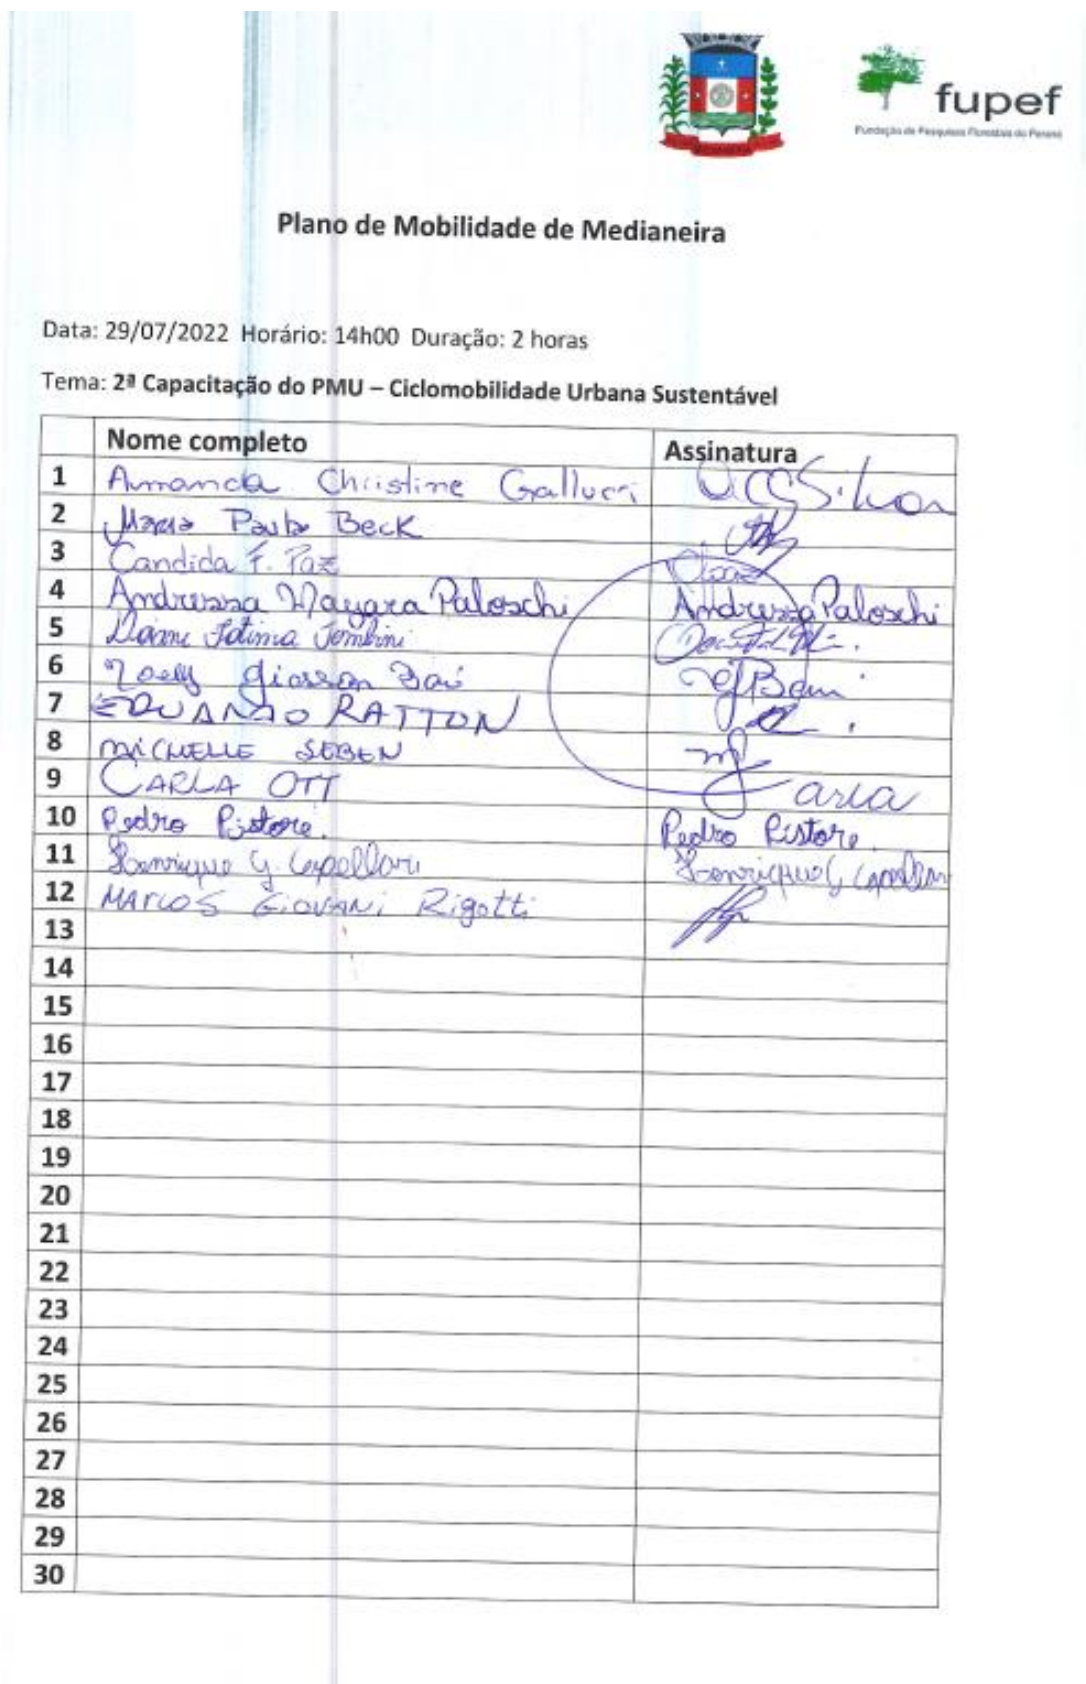 fupef
Fundação de Pesquisas Florestais do Paraná
Plano de Mobilidade de Medianeira
Data: 29/07/2022 Horário: 14h00 Duração: 2 horas
Tema: 2ª Capacitação do PMU – Ciclomobilidade Urbana Sustentável
Nome completo Assinatura
1 Amanda Christine Gallucci
2 Maria Paula Beck
3 Candida F. Paz
4 Andressa Mayara Paloschi Andressa Paloschi
5 Fatima Tombini
6 Giasson
7 EDUARDO RATTON
8 MICHELLE SEBEN
9 CARLA OTT Carla
10 Pedro Pistore. Pedro Pistore.
11 Henrique G. Capellari Henrique G Capellari
12 MARCOS GIOVANI Rigotti
13
14
15
16
17
18
19
20
21
22
23
24
25
26
27
28
29
30